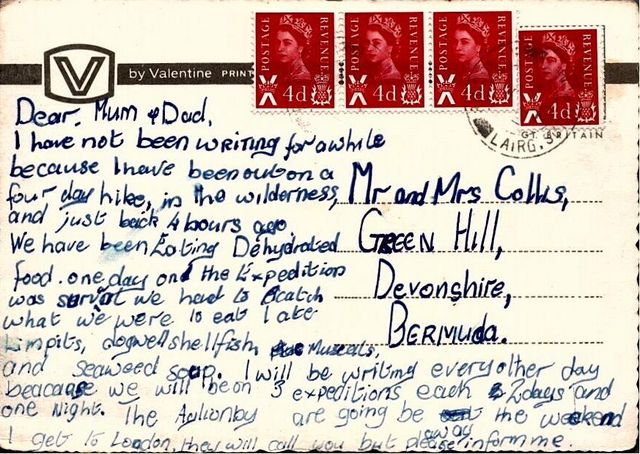 by Valentine PRINT
POSTAGE REVENUE 4d
POSTAGE REVENUE 4d
POSTAGE REVENUE 4d
POSTAGE REVENUE 4d
GT. BRITAIN
LAIRG, S
Dear, Mum & Dad,
I have not been writing for a while
because I have been out on a
four day hike, in the wilderness,
and just back 4 hours ago,
We have been Eating Dehydrated
food. one day on the Expedition
was we had to catch
what we were to eat I ate
Limpits, dogwelshellfish, Muscals,
and seaweed soup. I will be writing every other day
beacause we will be on 3 expeditions each 2 days and
one Night. The are going be the weekend
I get to London, they will call you but please inform me.
away
Mr and Mrs Collis,
GREEN Hill,
Devonshire,
BERMUDA.